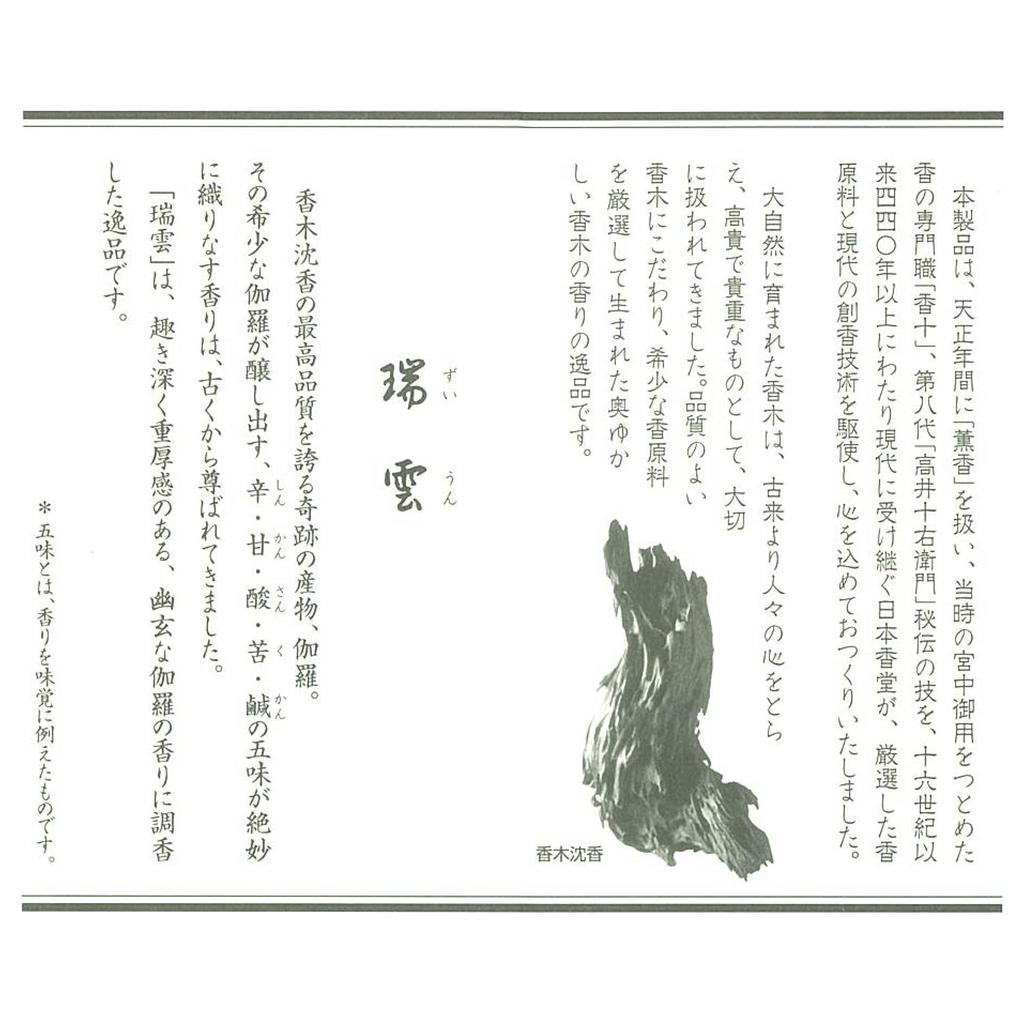 本製品は、天正年間に「薫香」を扱い、当時の宮中御用をつとめた
香の専門職「香十」、第八代「高井十右衛門」秘伝の技を、十六世紀以
来四四〇年以上にわたり現代に受け継ぐ日本香堂が、厳選した香
原料と現代の創香技術を駆使し、心を込めておつくりいたしました。
大自然に育まれた香木は、古来より人々の心をとら
え、高貴で貴重なものとして、大切
に扱われてきました。品質のよい
香木にこだわり、希少な香原料
を厳選して生まれた奥ゆか
しい香木の香りの逸品です。
香木沈香
ずい うん
瑞雲
香木沈香の最高品質を誇る奇跡の産物、伽羅。
しん かん さん く かん
その希少な伽羅が醸し出す、辛・甘・酸・苦・鹹の五味が絶妙
に織りなす香りは、古くから尊ばれてきました。
「瑞雲」は、趣き深く重厚感のある、幽玄な伽羅の香りに調香
した逸品です。
＊五味とは、香りを味覚に例えたものです。